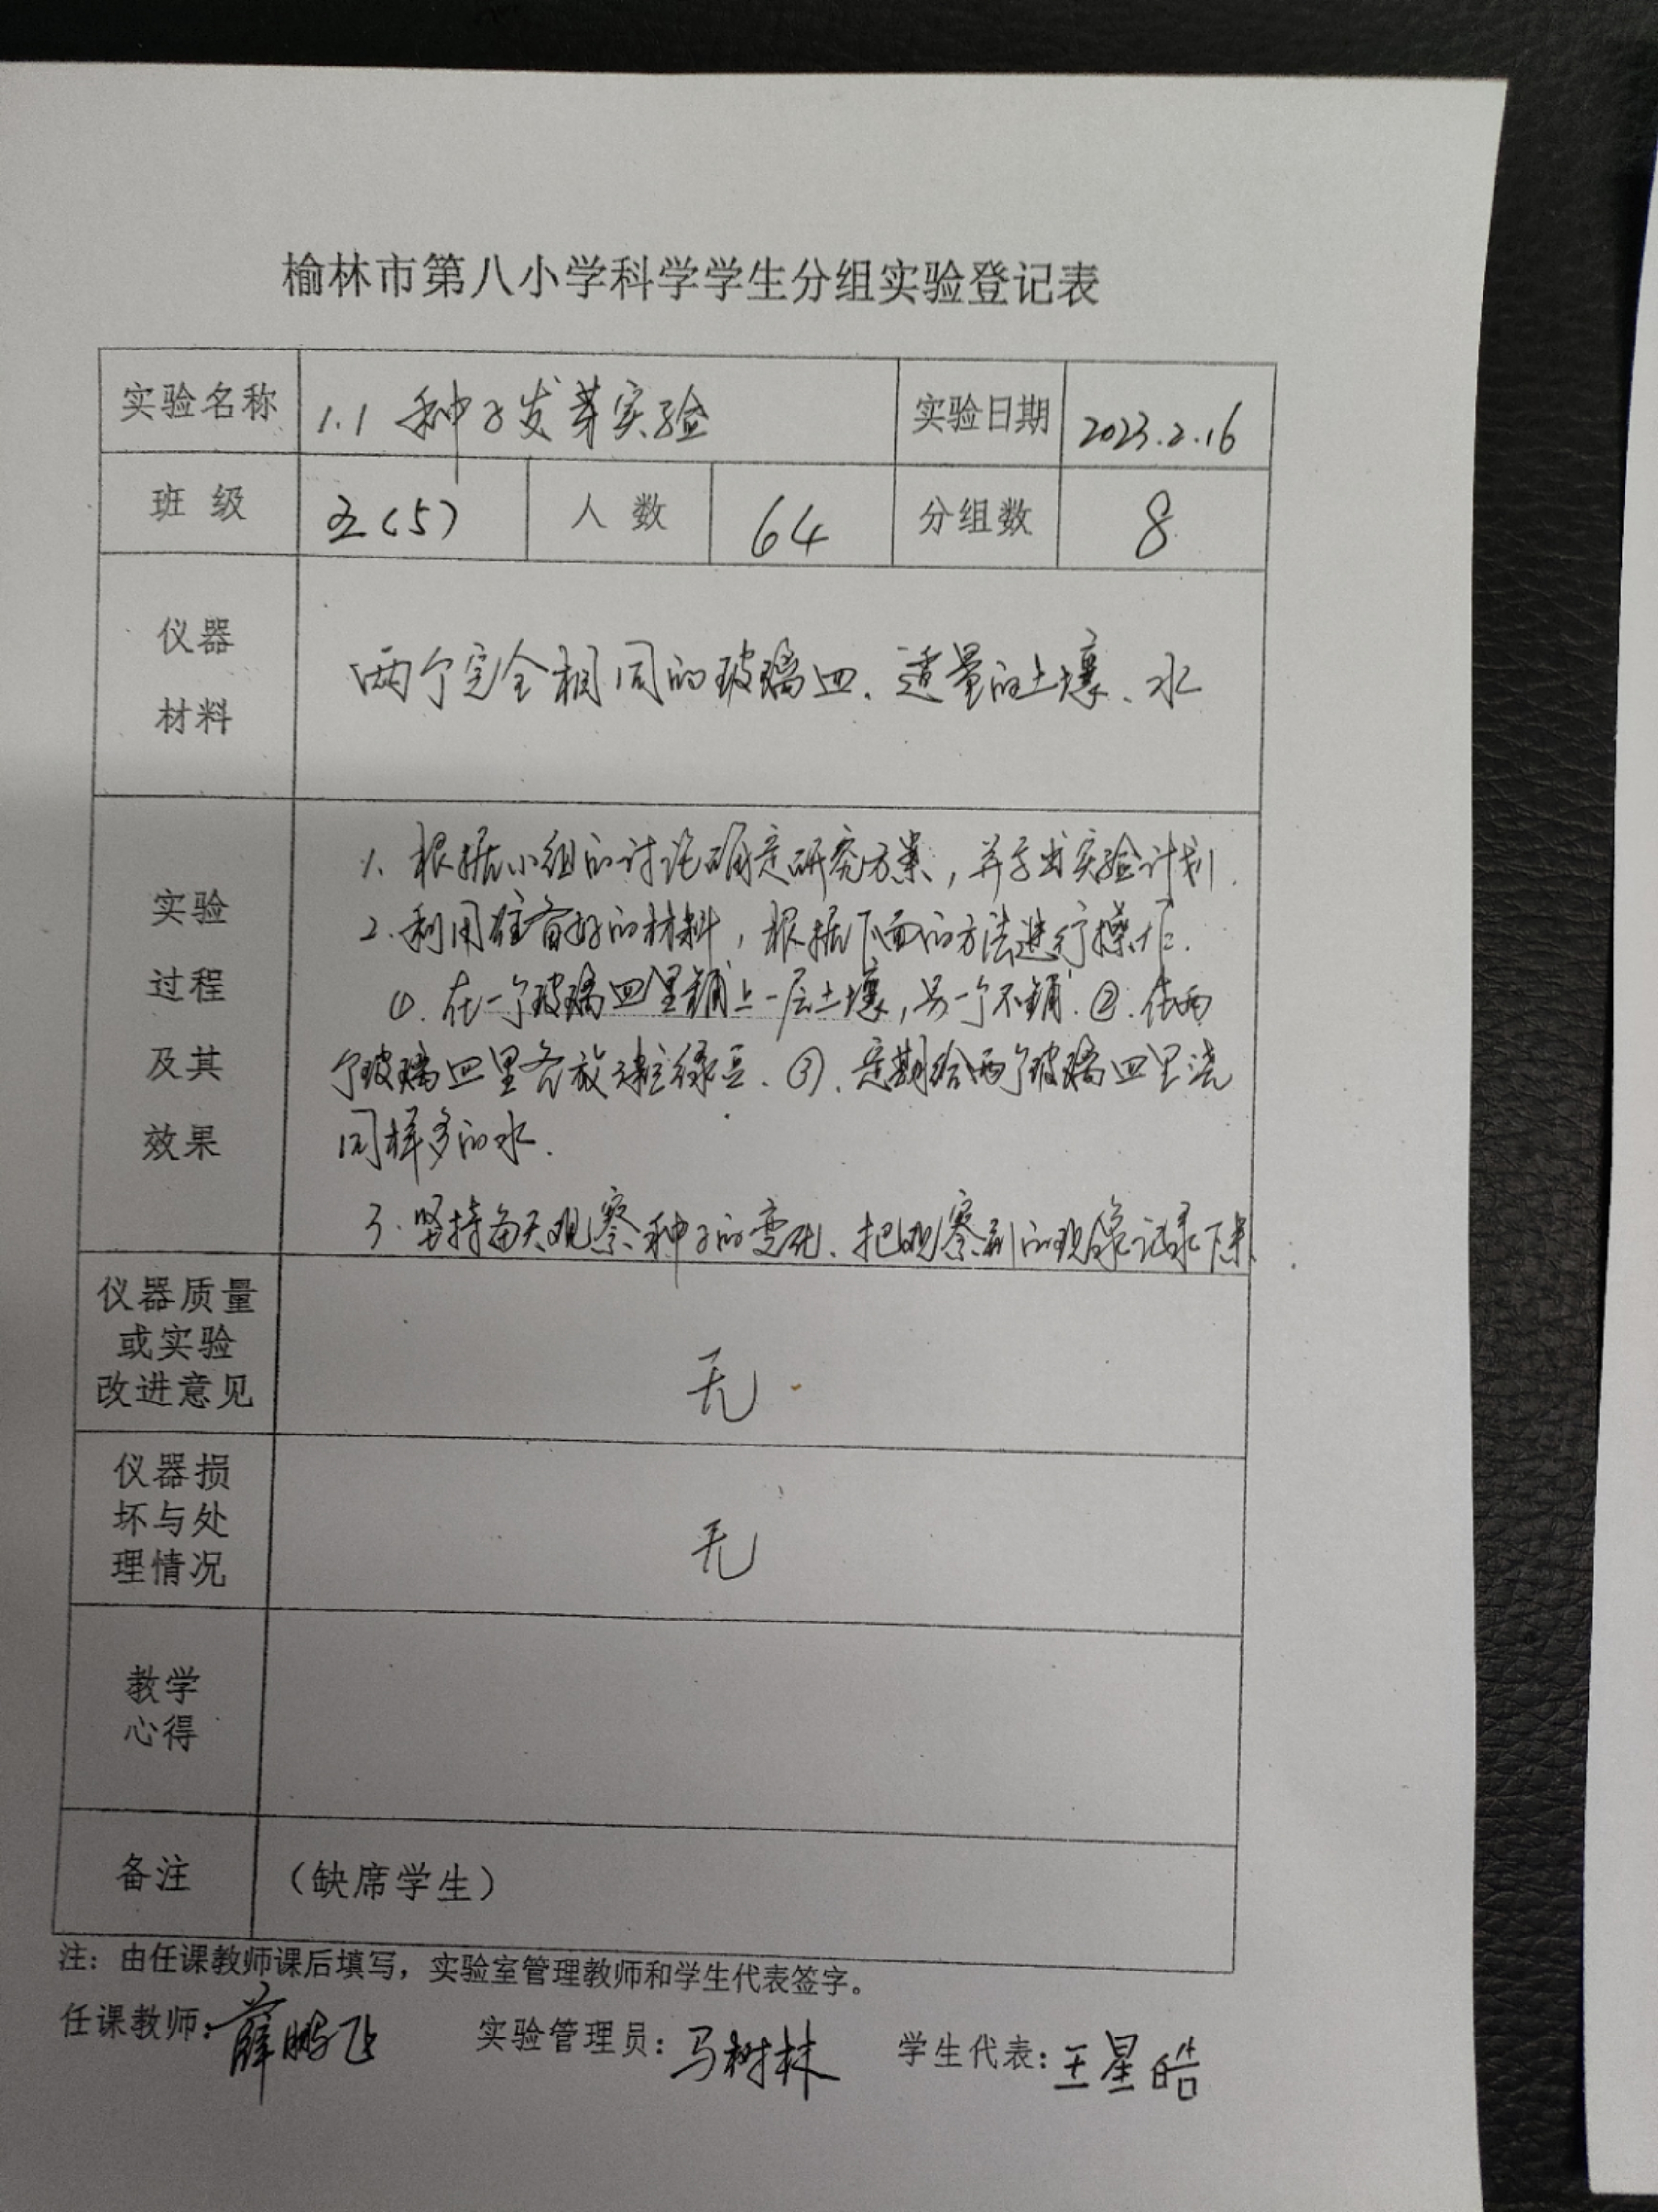 榆林市第八小学科学学生分组实验登记表
实验名称 1.1 种子发芽实验 实验日期 2023.2.16
班 级 五(5) 人 数 64 分组数 8
仪器
材料
两个完全相同的玻璃皿、适量的土壤、水
实验
过程
及其
效果
1、根据小组的讨论确定研究方案，并写出实验计划.
2、利用准备好的材料，根据下面的方法进行操作.
①.在一个玻璃皿里铺上一层土壤，另一个不铺.②.在两
个玻璃皿里各放 绿豆、③、定期给两个玻璃皿里浇
同样多的水.
3.坚持每天观察种子的变化、把观察到的现象记录下来.
仪器质量
或实验
改进意见
无
仪器损
坏与处
理情况
无
教学
心得
备注 （缺席学生）
注：由任课教师课后填写，实验室管理教师和学生代表签字。
任课教师：薛鹏飞 实验管理员：马树林 学生代表：王星皓